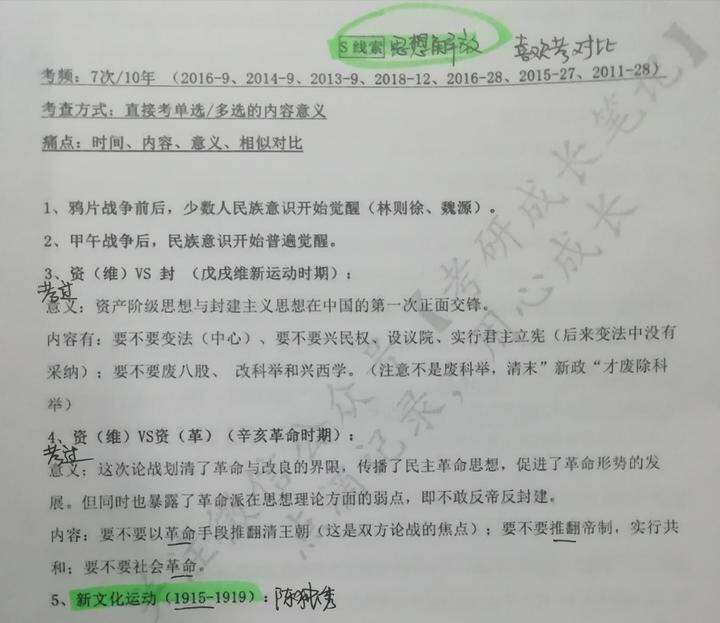 S线索 思想解放 喜欢考对比
考频：7次/10年 （2016-9、2014-9、2013-9、2018-12、2016-28、2015-27、2011-28）
考查方式：直接考单选/多选的内容意义
痛点：时间、内容、意义、相似对比
1、鸦片战争前后，少数人民族意识开始觉醒（林则徐、魏源）。
2、甲午战争后，民族意识开始普遍觉醒。
3、资（维）VS 封 （戊戌维新运动时期）：
考过
意义：资产阶级思想与封建主义思想在中国的第一次正面交锋。
内容有：要不要变法（中心）、要不要兴民权、设议院、实行君主立宪（后来变法中没有
采纳）；要不要废八股、 改科举和兴西学。（注意不是废科举，清末”新政“才废除科
举）
4、资（维）VS资（革）（辛亥革命时期）：
考过
意义：这次论战划清了革命与改良的界限，传播了民主革命思想，促进了革命形势的发
展。但同时也暴露了革命派在思想理论方面的弱点，即不敢反帝反封建。
内容：要不要以革命手段推翻清王朝（这是双方论战的焦点）；要不要推翻帝制，实行共
和；要不要社会革命。
5、新文化运动（1915-1919）：陈独秀
考研成长笔记】
点滴记录，用心成长